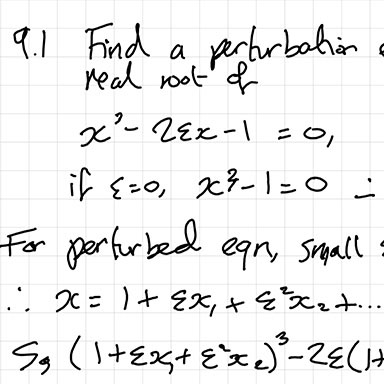 9.1 Find a perturbation
real root of
x³ - 2εx - 1 = 0,
if ε=0, x³ - 1 = 0 ∴
For perturbed eqn, small
∴ x = 1 + εx₁ + ε²x₂ + ...
So (1+εx₁+ε²x₂)³ - 2ε(1+